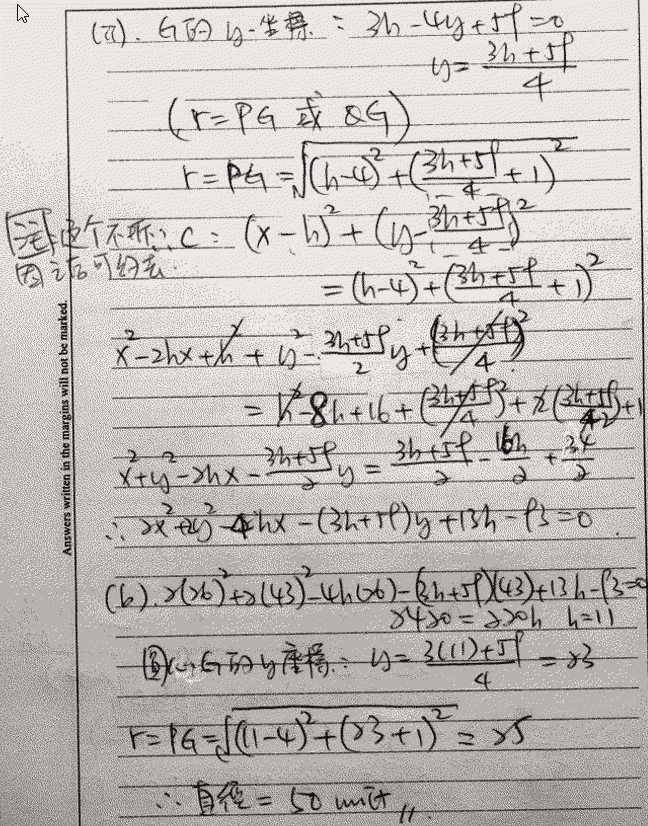 (ii). G的 y-坐標 : 3h-4y+59=0
y = \frac{3h+59}{4}
(r=PG 或 QG)
r = PG = \sqrt{(h-4)^2+(\frac{3h+59}{4}+1)^2}
註: 个不 ∴ C : (x-h)^2+(y-\frac{3h+59}{4})^2
因之后可約去.
= (h-4)^2+(\frac{3h+59}{4}+1)^2
x^2-2hx+h^2+y^2-\frac{3h+59}{2}y+(\frac{3h+59}{4})^2
= h^2-8h+16+(\frac{3h+59}{4})^2+2(\frac{3h+59}{42})+1
x^2+y^2-2hx-\frac{3h+59}{2}y = \frac{3h+59}{2}-\frac{16h}{2}+\frac{34}{2}
∴ 2x^2+2y^2-4hx-(3h+59)y+13h-93=0.
(b). 2(26)^2+2(43)^2-4h(26)-(3h+59)(43)+13h-93=0
2420=220h h=11
G的y座標: y=\frac{3(11)+59}{4}=23
r=PG=\sqrt{(11-4)^2+(23+1)^2}=25
∴ 直徑 = 50 unit //
Answers written in the margins will not be marked.